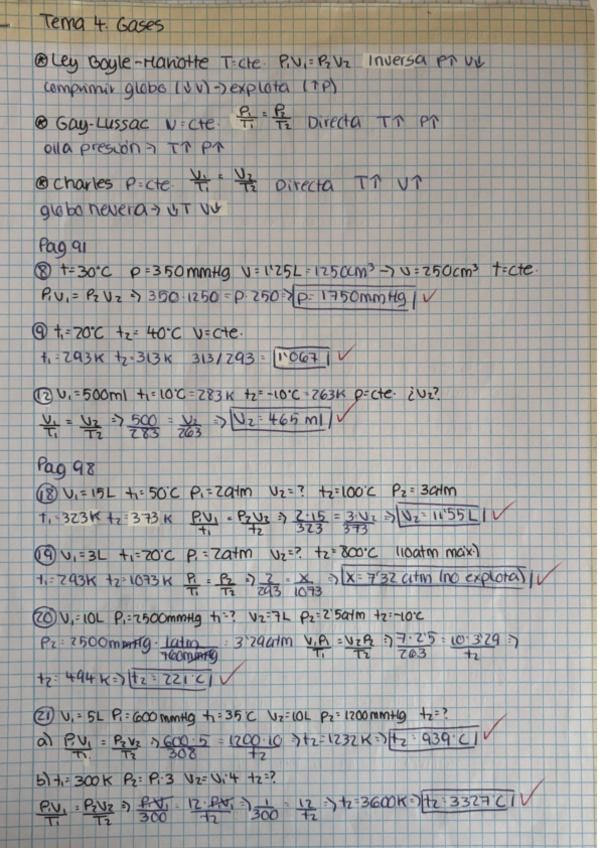 Tema 4. Gases
⊛ Ley Boyle-Mariotte T=cte. P₁V₁=P₂V₂ Inversa P↑ V↓
comprimir globo (↓V)→explota (↑P)
⊛ Gay-Lussac V=cte. P₁/T₁ = P₂/T₂ Directa T↑ P↑
olla presión→ T↑ P↑
⊛ Charles P=cte. V₁/T₁ = V₂/T₂ Directa T↑ V↑
globo nevera→ ↓T V↓
Pag 91
⑧ t=30°C p=350mmHg V=1'25L=1250cm³→V=250cm³ t=cte.
P₁V₁=P₂V₂ ⇒ 350·1250=P·250⇒ p=1750mmHg ✓
⑨ t₁=20°C t₂=40°C V=cte.
t₁=293K t₂=313K 313/293= 1'067 ✓
⑫ V₁=500ml t₁=10°C=283K t₂=-10°C=263K p=cte. ¿V₂?
V₁/T₁ = V₂/T₂ ⇒ 500/283 = V₂/263 ⇒ V₂=465 ml ✓
Pag 98
⑱ V₁=15L t₁=50°C P₁=2atm V₂=? t₂=100°C P₂=3atm
t₁=323K t₂=373K P₁V₁/t₁ = P₂V₂/t₂ ⇒ 2·15/323 = 3·V₂/373 ⇒ V₂=11'55L ✓
⑲ V₁=3L t₁=20°C P₁=2atm V₂=? t₂=800°C (10atm max.)
t₁=293K t₂=1073K P₁/T₁ = P₂/T₂ ⇒ 2/293 = x/1073 ⇒ x=7'32 atm (no explota) ✓
⑳ V₁=10L P₁=2500mmHg t₁=? V₂=7L P₂=2'5atm t₂=-10°C
P₂=2500mmHg·1atm/760mmHg = 3'29atm V₁P₁/T₁ = V₂P₂/T₂ ⇒ 7·2'5/263 = 10·3'29/t₂ ⇒
t₂=494K⇒ t₂=221°C ✓
㉑ V₁=5L P₁=600mmHg t₁=35°C V₂=10L P₂=1200mmHg t₂=?
a) P₁V₁/T₁ = P₂V₂/T₂ ⇒ 600·5/308 = 1200·10/t₂ ⇒ t₂=1232K⇒ t₂=939°C ✓
b) t₁=300K P₂=P₁·3 V₂=V₁·4 t₂=?
P₁V₁/T₁ = P₂V₂/T₂ ⇒ P₁V₁/300 = 12·P₁V₁/t₂ ⇒ 1/300 = 12/t₂ ⇒ t₂=3600K⇒ t₂=3327°C ✓